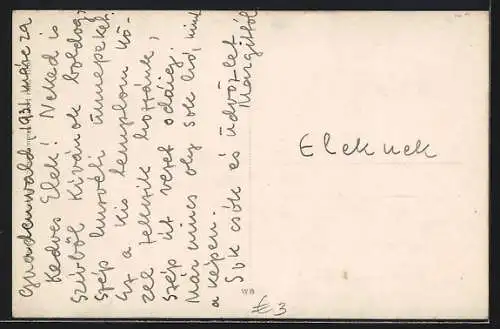 Gnadenwald, 1931. márc. 22
Kedves Elek! Neked is
szivböl kivánok boldog,
szép husvéti ünnepeket.
Ez a kis templom kö-
zel fekszik hozzánk,
szép út vezet odáig.
Már nincs oly sok hó, mint
a képen.
Sok csók és üdvözlet
Margittól
Eleknek
WB
€ 3